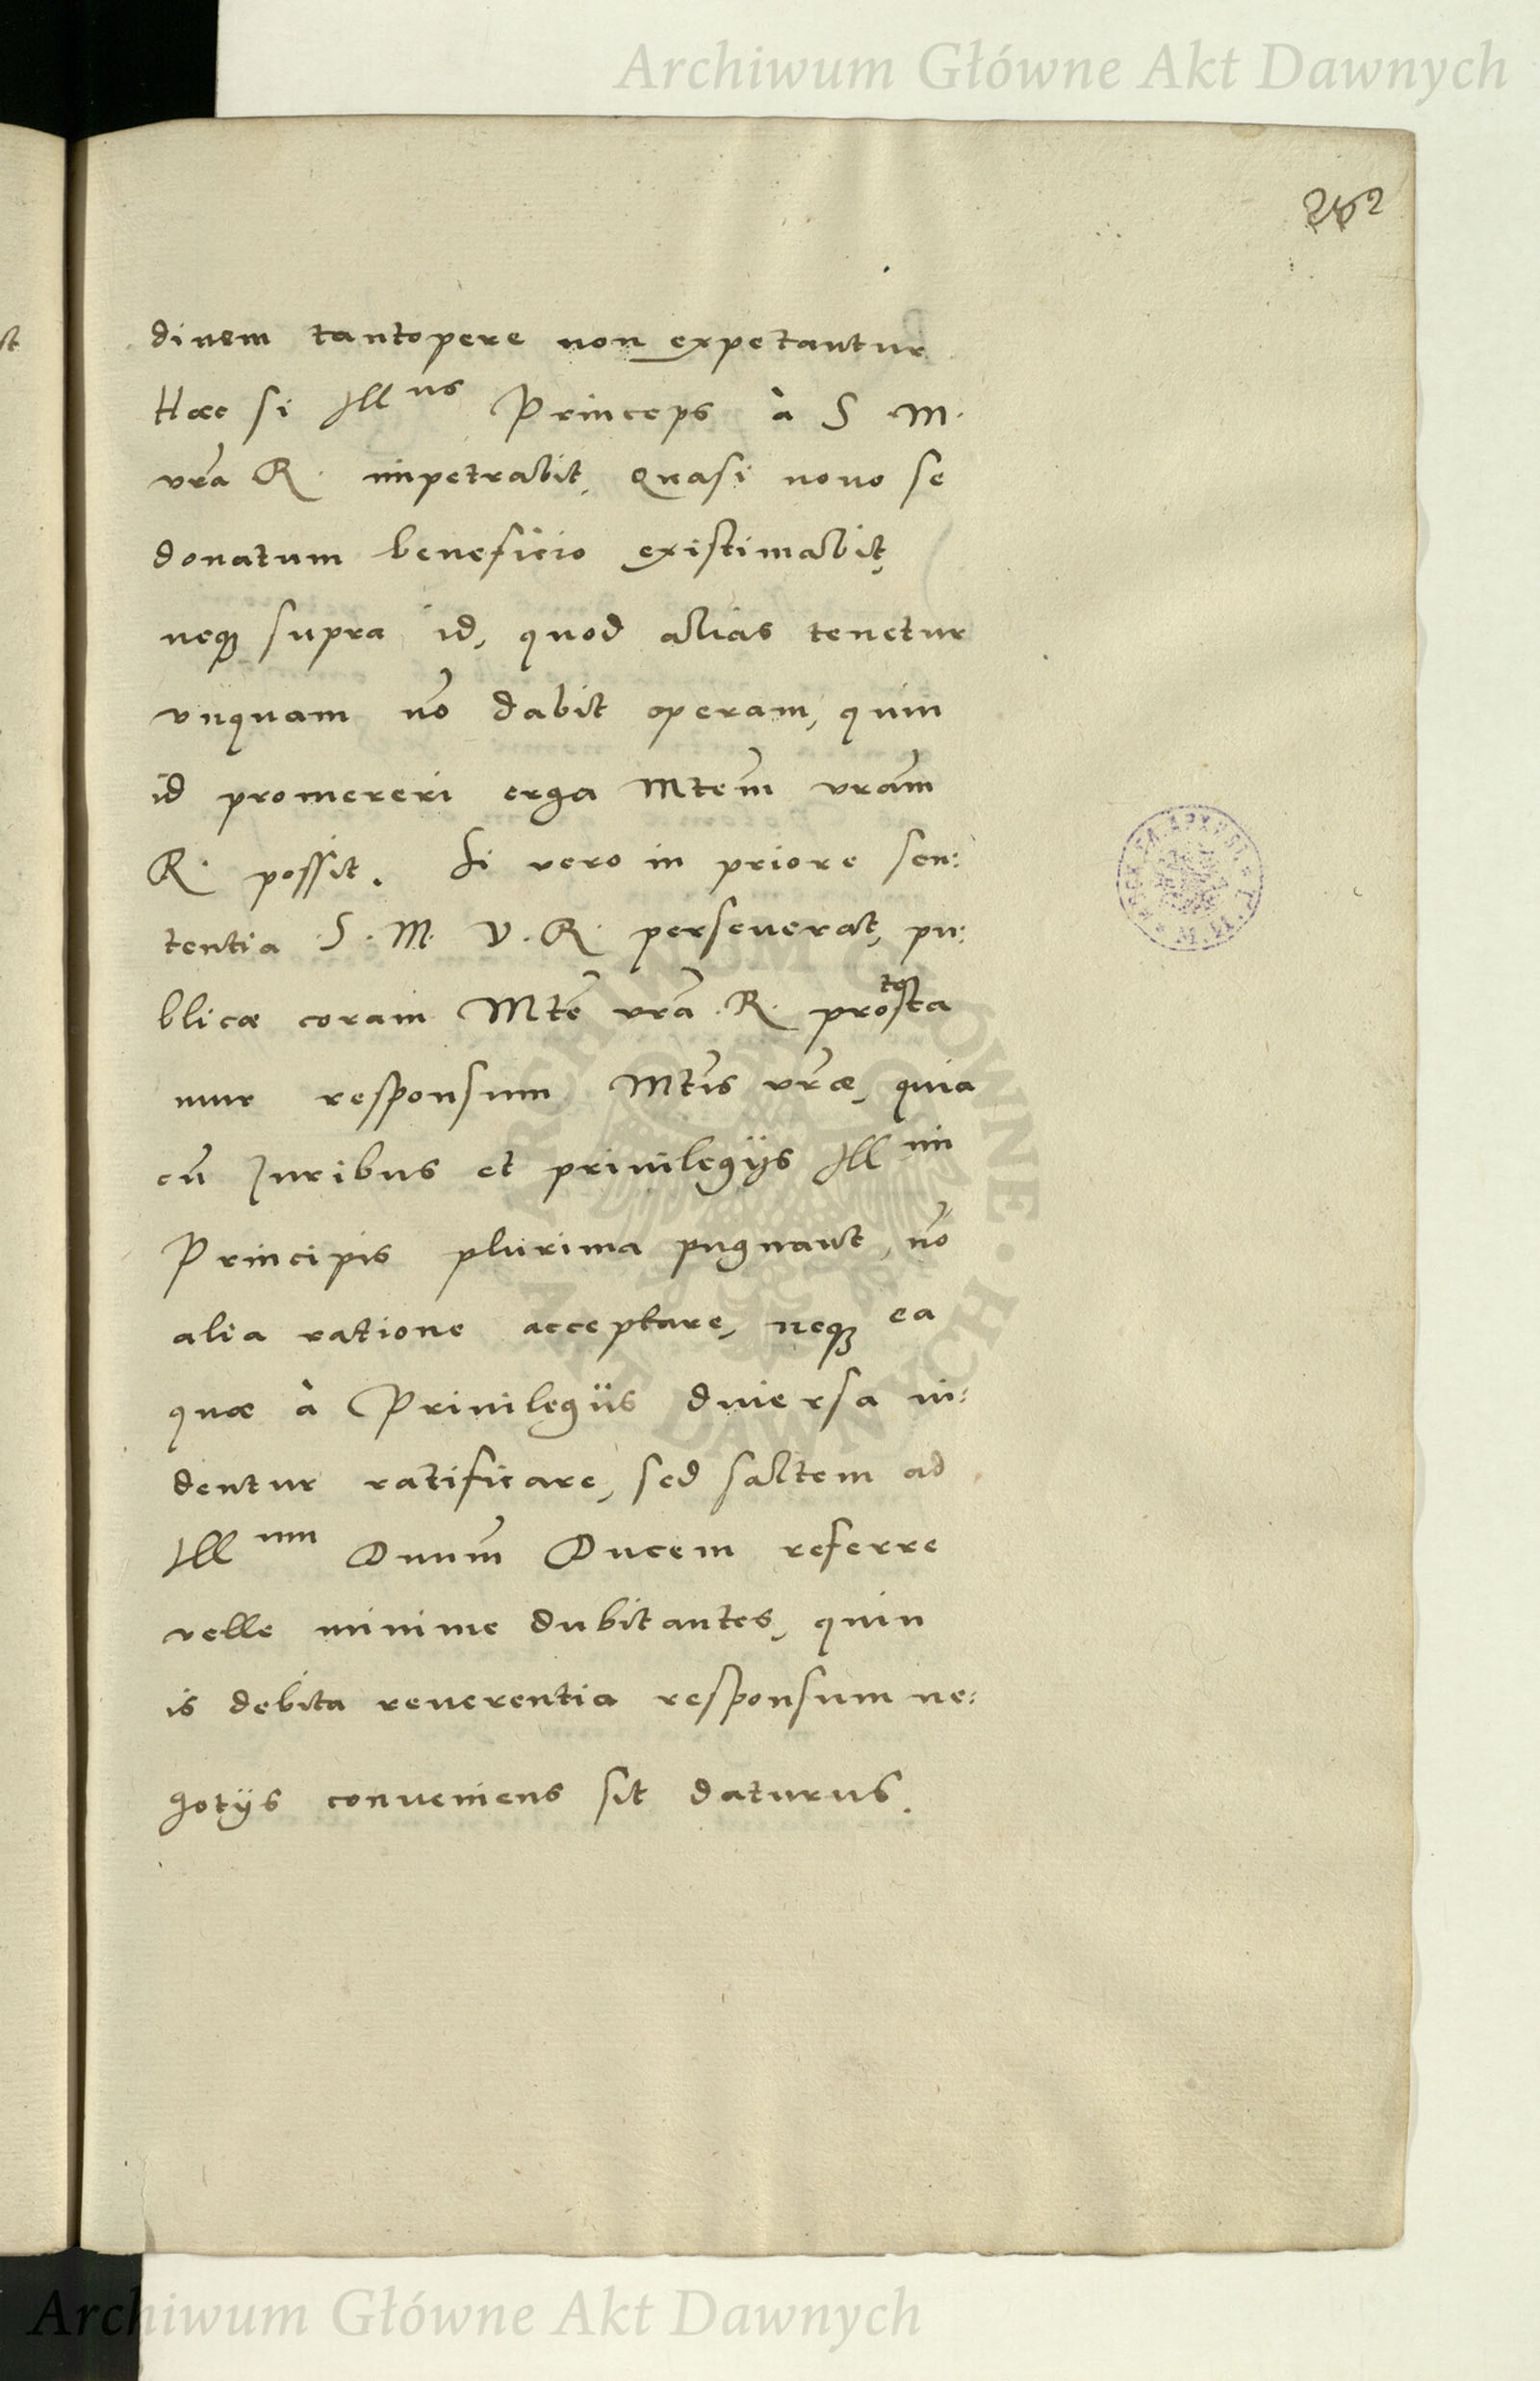 Archiwum Główne Akt Dawnych
dinem tantopere non expetantur
Hæc si Ill^us Princeps à S M.
vrã R. impetrabit, Quasi nouo se
donatum beneficio existimabit,
neq3 supra id, quod alias tenetur
vnquam nõ dabit operam, quin
id promereri erga Mtem̃ vram̃
R. possit. Si vero in priore sen:
tentia S. M. V. R. perseuerat, pu:
blicæ coram Mtẽ vrã R. protesta
mur responsum Mtis̃ vræ̃, quia
cũ Juribus et priuilegijs Ill^mi
Principis plurima pugnant, nõ
alia ratione acceptare, neq3 ea
quæ à Priuilegiis diuersa ui:
dentur ratificare, sed saltem ad
Ill^mum Dnum̃ Ducem referre
velle minime dubitantes, quin
is debita reuerentia responsum ne:
gotijs conueniens sit daturus.
ARCHIWUM GŁÓWNE AKT DAWNYCH
Archiwum Główne Akt Dawnych